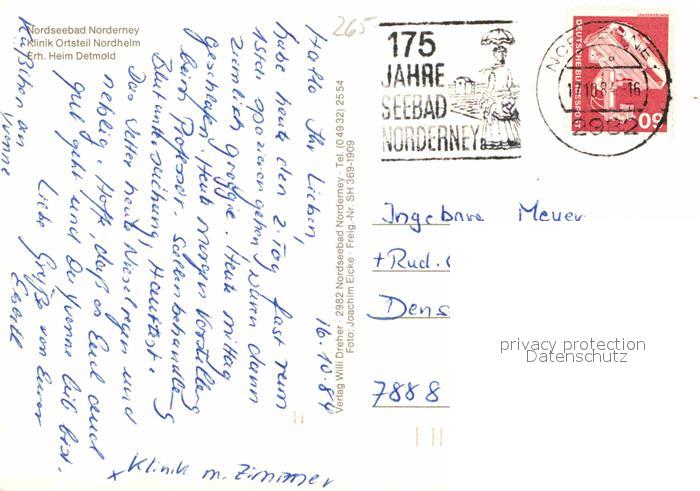 Nordseebad Norderney
Klinik Ortsteil Nordhelm
Erh. Heim Detmold
265
16.10.84
Hallo Ihr Lieben,
habe heute den 2. Tag fast rum
1 Std. spazieren gehen, waren dann
ziemlich groggie. Heute mittag
geschlafen. Heute morgen Vorstellung
beim Professor.
Blutuntersuchung, Hauttest.
Das Wetter heute Nieselregen und
neblig. Hoffe, daß es Euch auch
gut geht und Du Yvonne lieb bist.
Liebe Grüße von Eurer
Küßchen an
Yvonne
x Klinik m. Zimmer
Verlag Willi Dreher · 2982 Nordseebad Norderney · Tel. (0 49 32) 25 54
Foto: Joachim Eicke · Freig.-Nr. SH 369-1909
175
JAHRE
SEEBAD
NORDERNEY
DEUTSCHE BUNDESPOST
60
Ingebare Meyer
+ Rud.
Dens
7888
privacy protection
Datenschutz